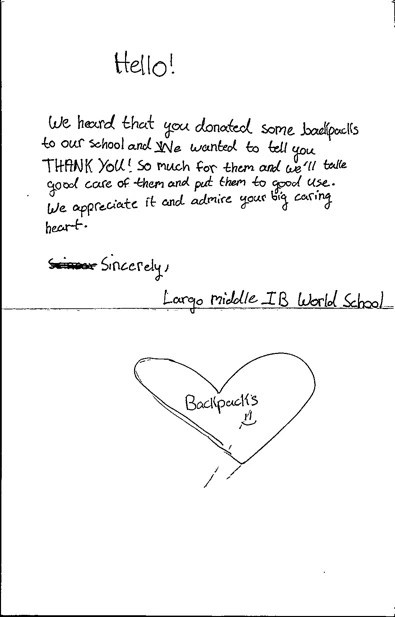 Hello!
We heard that you donated some backpacks
to our school and We wanted to tell you
THANK YOU! So much for them and we'll take
good care of them and put them to good use.
We appreciate it and admire your big caring
heart.
Sincerely,
Largo middle IB World School
Backpacks